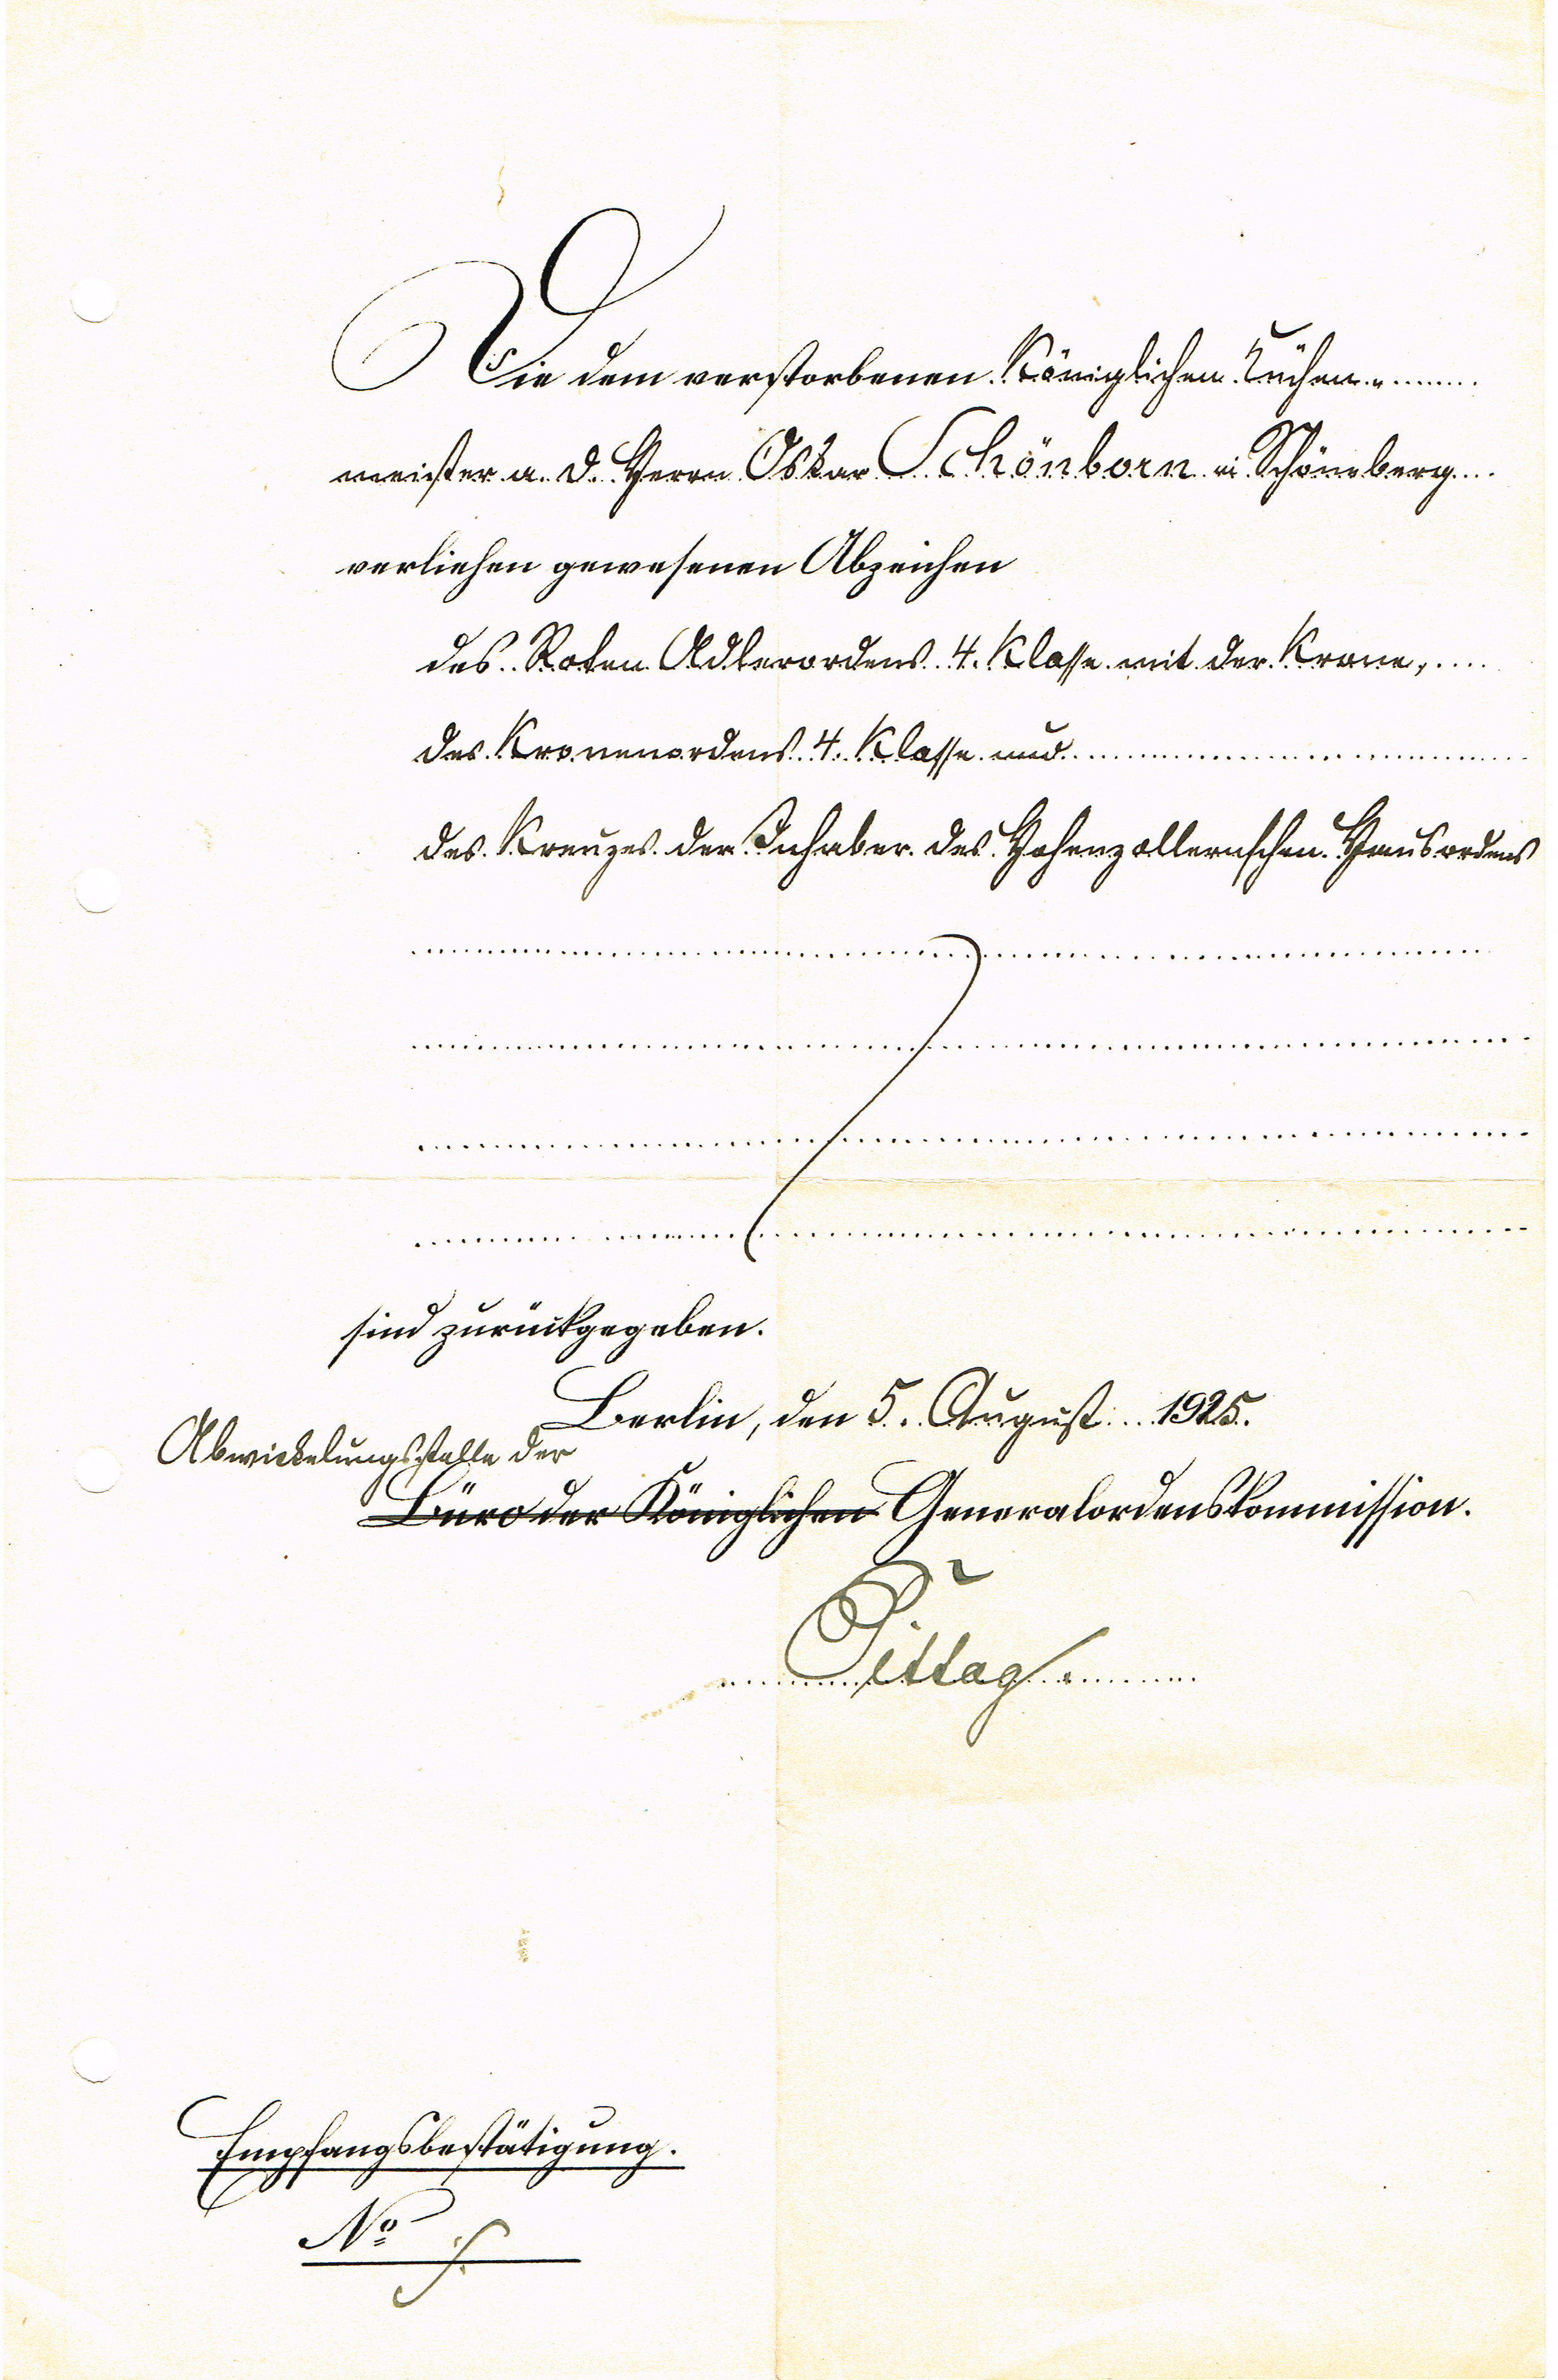 Die dem verstorbenen Königlichen Küchen-
meister a. D. Herrn Oskar Schönborn in Schöneberg
verliehen gewesenen Abzeichen
des Roten Adlerordens 4. Klasse mit der Krone,
des Kronenordens 4. Klasse und
des Kreuzes der Inhaber des Hohenzollernschen Hausordens
sind zurückgegeben.
Berlin, den 5. August 1925.
Abwickelungsstelle der
Büro der Königlichen Generalordenskommission.
Empfangsbestätigung.
No